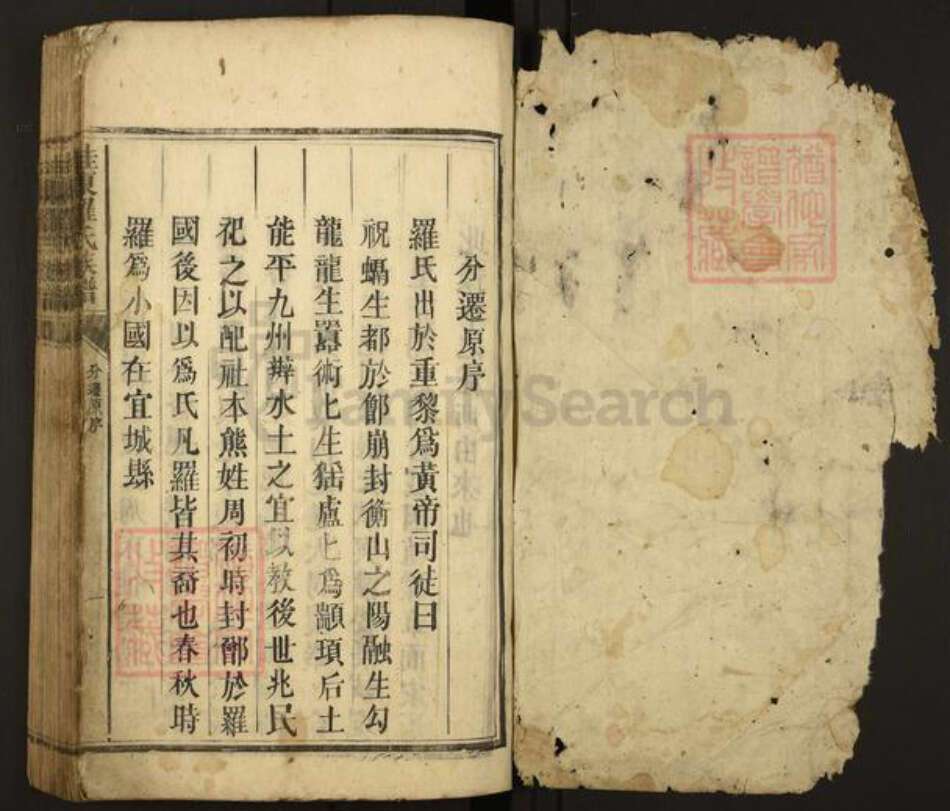 分遷原序
羅氏出於重黎爲黃帝司徒曰
祝蝸生都於鄮崩封衡山之陽融生勾
龍龍生囂術匕生猺盧匕爲顓頊后土
能平九州辨水土之宜以教後世兆民
祀之以配社本熊姓周初時封鄀於羅
國後因以爲氏凡羅皆其裔也春秋時
羅爲小國在宜城縣
東羅氏族譜
分遷原序
一
FamilySearch